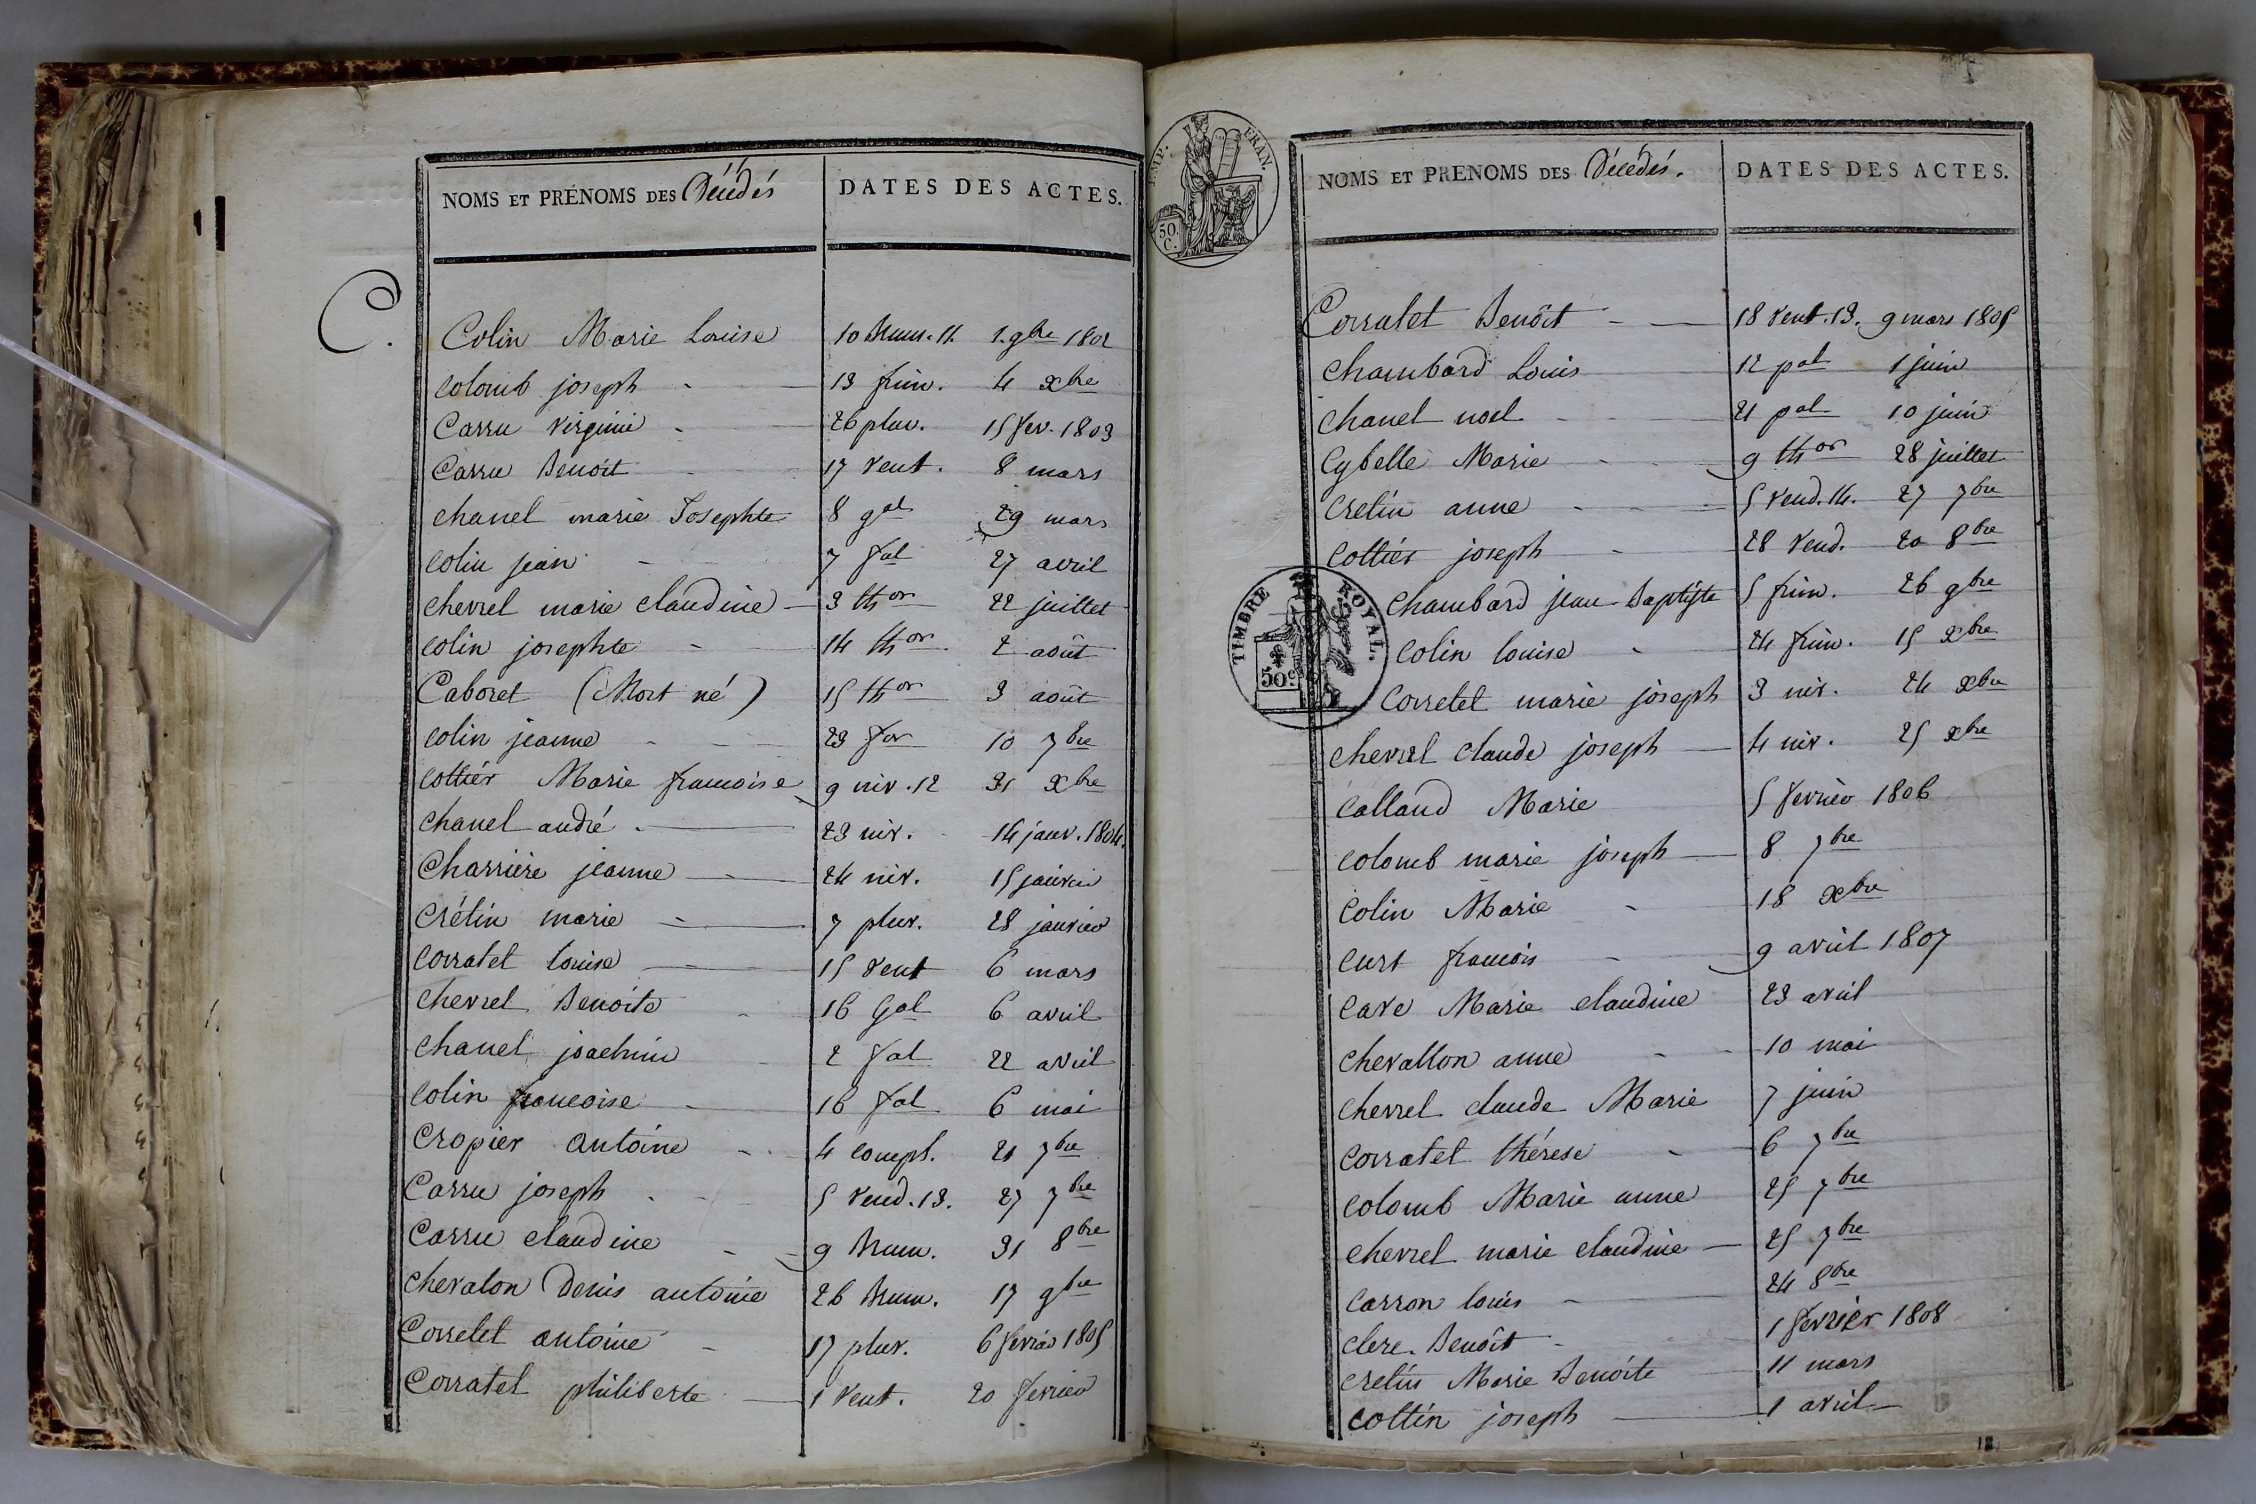 NOMS ET PRÉNOMS DES Décédés
DATES DES ACTES.
C.
Colin Marie Louise 10 brum. 11. 1. 9bre 1802
Colomb joseph 13 frim. 4 xbre
Carru Virginie 26 pluv. 15 fev. 1803
Carru Benoit 17 Vent. 8 mars
Chanel marie Josephte 8 gal 29 mars
Colin jean 7 fal 27 avril
Chevrel marie Claudine 3 thor 22 juillet
Colin josephte 14 thor 2 août
Caboret (Mort né) 15 thor 3 août
Colin jeanne 23 for 10 7bre
Cottier Marie francoise 9 niv. 12 31 xbre
Chanel andré 23 niv. 14 janv. 1804.
Charriere jeanne 24 niv. 15 janvier
Crétin marie 7 pluv. 28 janvier
Corratet Louise 15 Vent 6 mars
Chevrel Benoite 16 Gal 6 avril
Chanel joachim 2 fal 22 avril
Colin francoise 16 fal 6 mai
Cropier Antoine 4 compl. 21 7bre
Carru joseph 5 Vend. 13. 27 7bre
Carru Claudine 9 brum. 31 8bre
Chevalon Denis antoine 26 brum. 17 9bre
Corretet antoine 17 pluv. 6 fevrier 1805
Corratet philiberte 1 Vent. 20 fevrier
NOMS ET PRENOMS DES Décédés.
DATES DES ACTES.
FRAN.
50.
C.
Corratet Benôit 18 Vent. 13. 9 mars 1805
Chambard Louis 12 pal 1 juin
Chanel noel 21 pal 10 juin
Cybelle Marie 9 thor 28 juillet
Cretin anne 5 Vend. 14. 27 7bre
Cottier joseph 28 Vend. 20 8bre
TIMBRE ROYAL.
50c
Chambard jean Baptiste 5 frim. 26 9bre
Colin Louise 24 frim. 15 xbre
Corretet marie joseph 3 niv. 24 xbre
Chevrel Claude joseph 4 niv. 25 xbre
Calland Marie 5 fevrier 1806
Colomb marie joseph 8 7bre
Colin Marie 18 xbre
Curt francois 9 avril 1807
Cave Marie Claudine 23 avril
Chevallon anne 10 mai
Chevrel Claude Marie 7 juin
Corratet thérese 6 7bre
Colomb Marie anne 25 7bre
Chevrel marie Claudine 25 7bre
Carron Louis 24 8bre
Clere Benôit 1 fevrier 1808
Cretin Marie Benoite 11 mars
Cottin joseph 1 avril